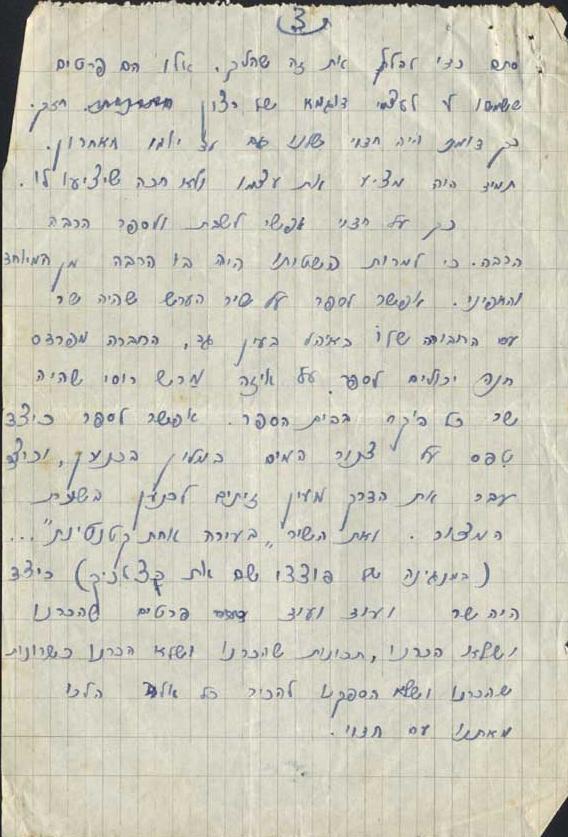 3
סתם כדי לבלף את זה שהלך. אלו הם פרטים
ששמשו לי לעצמי דוגמא של רצון חזק.
כך דומני היה חצוי שלנו גם עד יומו האחרון.
תמיד היה מציע את עצמו ולא חכה שיציעו לו.
כך על חצוי אפשר לשבת ולספר הרבה
הרבה. כי למרות פשטותו היה בו הרבה מן המיוחד
והאפיני. אפשר לספר על שיר הערש שהיה שר
עם החבורה שלו באוהל בעין גב, החברה מפרדס
חנה יכולים לספר על איזה מרש רוסי שהיה
שר כל בקר בבית הספר. אפשר לספר כיצד
טפס על צנור המים בכנען, וכיצד
עבר את הדרך מעין זיתים לכנען בשעת
המצור. ואת השיר "בעירה אחת קטנטינת"...
(במנגינה של פוצצו שם את) כיצד
היה שר ועוד ועוד פרטים שהכרנו
ושלא הכרנו, תכונות שהכרנו ושלא הכרנו כשרונות
שהכרנו ושלא הספקנו להכיר כל אלה הלכו
מאתנו עם חצוי.